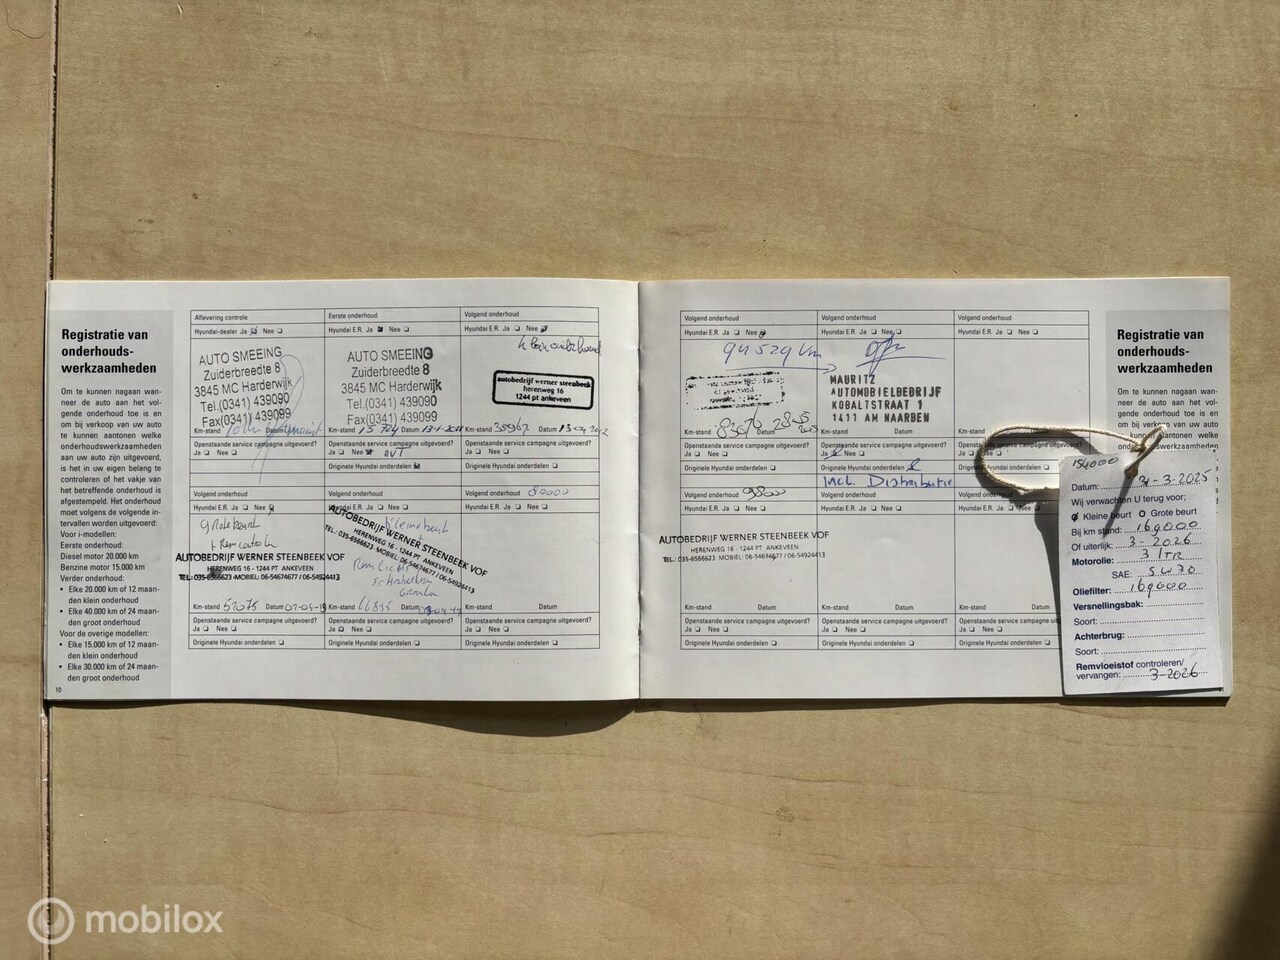 Registratie van
onderhouds-
werkzaamheden
Om te kunnen nagaan wan-
neer de auto aan het vol-
gende onderhoud toe is en
om bij verkoop van uw auto
te kunnen aantonen welke
onderhoudswerkzaamheden
aan uw auto zijn uitgevoerd,
is het in uw eigen belang te
controleren of het vakje van
het betreffende onderhoud is
afgestempeld. Het onderhoud
moet volgens de volgende in-
tervallen worden uitgevoerd:
Voor i-modellen:
Eerste onderhoud:
Diesel motor 20.000 km
Benzine motor 15.000 km
Verder onderhoud:
• Elke 20.000 km of 12 maan-
den klein onderhoud
• Elke 40.000 km of 24 maan-
den groot onderhoud
Voor de overige modellen:
• Elke 15.000 km of 12 maan-
den klein onderhoud
• Elke 30.000 km of 24 maan-
den groot onderhoud
10
Aflevering controle
Hyundai-dealer Ja Nee
AUTO SMEEING
Zuiderbreedte 8
3845 MC Harderwijk
Tel.(0341) 439090
Fax(0341) 439099
Km-stand Datum
Openstaande service campagne uitgevoerd?
Ja Nee
Eerste onderhoud
Hyundai E.R. Ja Nee
AUTO SMEEING
Zuiderbreedte 8
3845 MC Harderwijk
Tel.(0341) 439090
Fax(0341) 439099
Km-stand 15 724 Datum 13-1-2011
Openstaande service campagne uitgevoerd?
Ja Nee
Originele Hyundai onderdelen
Volgend onderhoud
Hyundai E.R. Ja Nee
autobedrijf werner steenbeek
herenweg 16
1244 pt ankeveen
Km-stand Datum
Openstaande service campagne uitgevoerd?
Ja Nee
Originele Hyundai onderdelen
Volgend onderhoud
Hyundai E.R. Ja Nee
AUTOBEDRIJF WERNER STEENBEEK VOF
HERENWEG 16 - 1244 PT ANKEVEEN
TEL: 035-6566623 MOBIEL: 06-54674677 / 06-54924413
Km-stand 52075 Datum
Openstaande service campagne uitgevoerd?
Ja Nee
Originele Hyundai onderdelen
Volgend onderhoud
Hyundai E.R. Ja Nee
AUTOBEDRIJF WERNER STEENBEEK VOF
HERENWEG 16 - 1244 PT ANKEVEEN
TEL: 035-6566623 MOBIEL: 06-54674677 / 06-54924413
Km-stand Datum
Openstaande service campagne uitgevoerd?
Ja Nee
Originele Hyundai onderdelen
Volgend onderhoud 80000
Hyundai E.R. Ja Nee
Km-stand Datum
Openstaande service campagne uitgevoerd?
Ja Nee
Originele Hyundai onderdelen
Volgend onderhoud
Hyundai E.R. Ja Nee
94529 km
Km-stand Datum
Openstaande service campagne uitgevoerd?
Ja Nee
Originele Hyundai onderdelen
Volgend onderhoud
Hyundai E.R. Ja Nee
MAURITZ
AUTOMOBIELBEDRIJF
KOBALTSTRAAT 1
1411 AM NAARDEN
Km-stand Datum
Openstaande service campagne uitgevoerd?
Ja Nee
Originele Hyundai onderdelen
Incl Distributie
Volgend onderhoud
Hyundai E.R. Ja Nee
Km-stand Datum
Openstaande service campagne uitgevoerd?
Ja Nee
Originele Hyundai onderdelen
Volgend onderhoud 98000
Hyundai E.R. Ja Nee
AUTOBEDRIJF WERNER STEENBEEK VOF
HERENWEG 16 - 1244 PT ANKEVEEN
TEL: 035-6566623 MOBIEL: 06-54674677 / 06-54924413
Km-stand Datum
Openstaande service campagne uitgevoerd?
Ja Nee
Originele Hyundai onderdelen
Volgend onderhoud
Hyundai E.R. Ja Nee
Km-stand Datum
Openstaande service campagne uitgevoerd?
Ja Nee
Originele Hyundai onderdelen
Volgend onderhoud
Hyundai E.R. Ja Nee
Km-stand Datum
Openstaande service campagne uitgevoerd?
Ja Nee
Originele Hyundai onderdelen
Registratie van
onderhouds-
werkzaamheden
Om te kunnen nagaan wan-
neer de auto aan het vol-
gende onderhoud toe is en
om bij verkoop van uw auto
te kunnen aantonen welke
onderhoudswerkzaamheden
154000
Datum: 31-3-2025
Wij verwachten U terug voor;
Kleine beurt O Grote beurt
Bij km stand: 169000
Of uiterlijk: 3-2026
Motorolie: 3 LTR
SAE: 5W30
Oliefilter: 169000
Versnellingsbak:
Soort:
Achterbrug:
Soort:
Remvloeistof controleren/
vervangen: 3-2026
mobilox